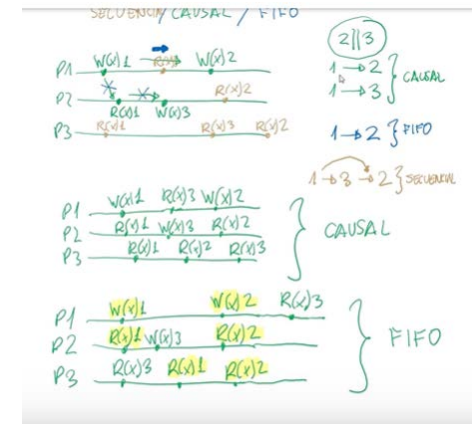 SECUENCIAL / CAUSAL / FIFO
2||3
P1 W(x)1 W(x)2
1→2
1→3 } CAUSAL
P2 R(x)1 W(x)3 R(x)2
P3 R(x)1 R(x)3 R(x)2
1→2 } FIFO
1→3→2 } SECUENCIAL
P1 W(x)1 R(x)3 W(x)2
P2 R(x)1 W(x)3 R(x)2
P3 R(x)1 R(x)2 R(x)3
CAUSAL
P1 W(x)1 W(x)2 R(x)3
P2 R(x)1 W(x)3 R(x)2
P3 R(x)3 R(x)1 R(x)2
FIFO